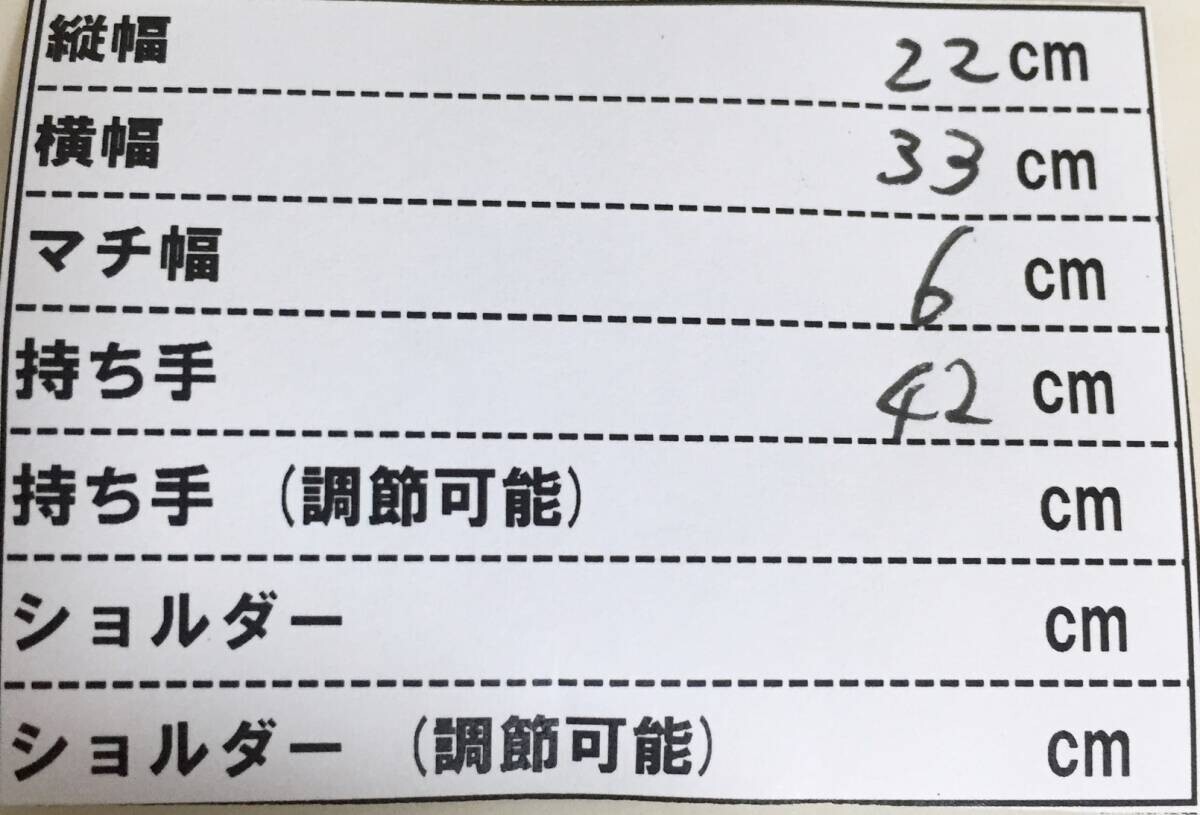 縦幅 22cm
横幅 33 cm
マチ幅 6 cm
持ち手 42 cm
持ち手 (調節可能) cm
ショルダー cm
ショルダー (調節可能) cm